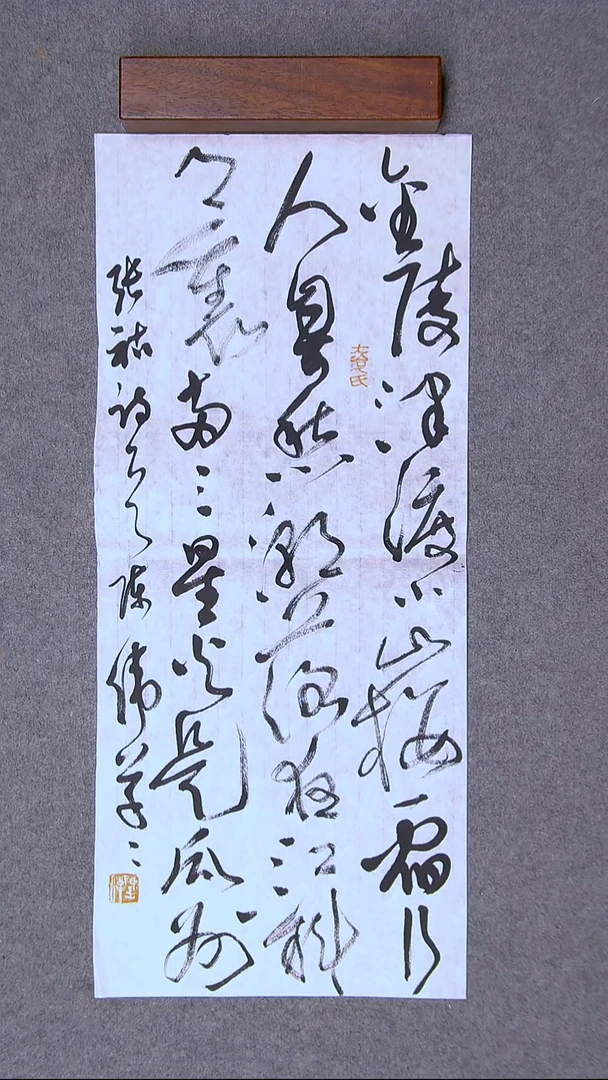 金陵津渡小山楼一宿行
人自可愁潮落夜江斜
月裏两三星火是瓜州
张祜诗 陈伟草